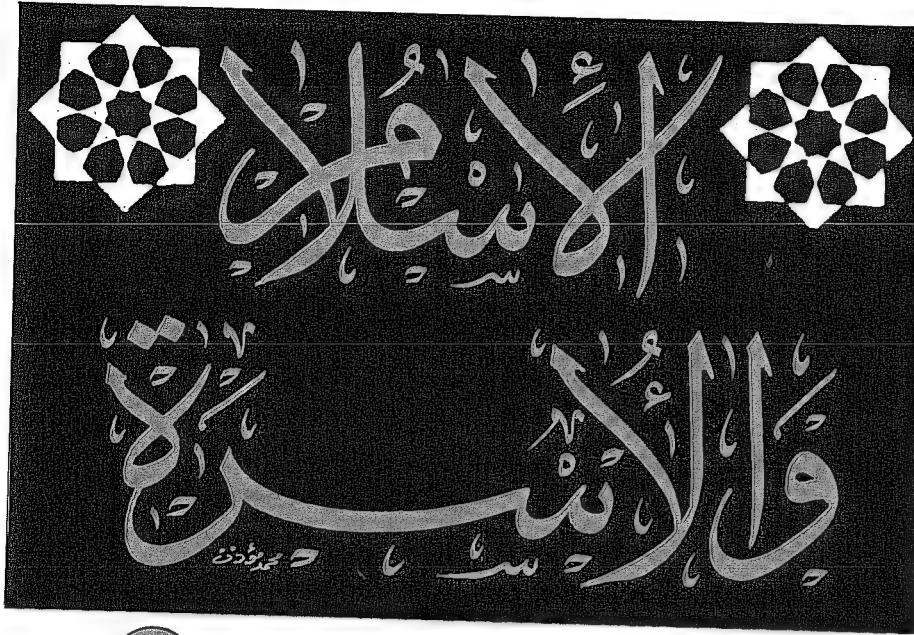 الإسلام
والأسرة
محمد مؤذن